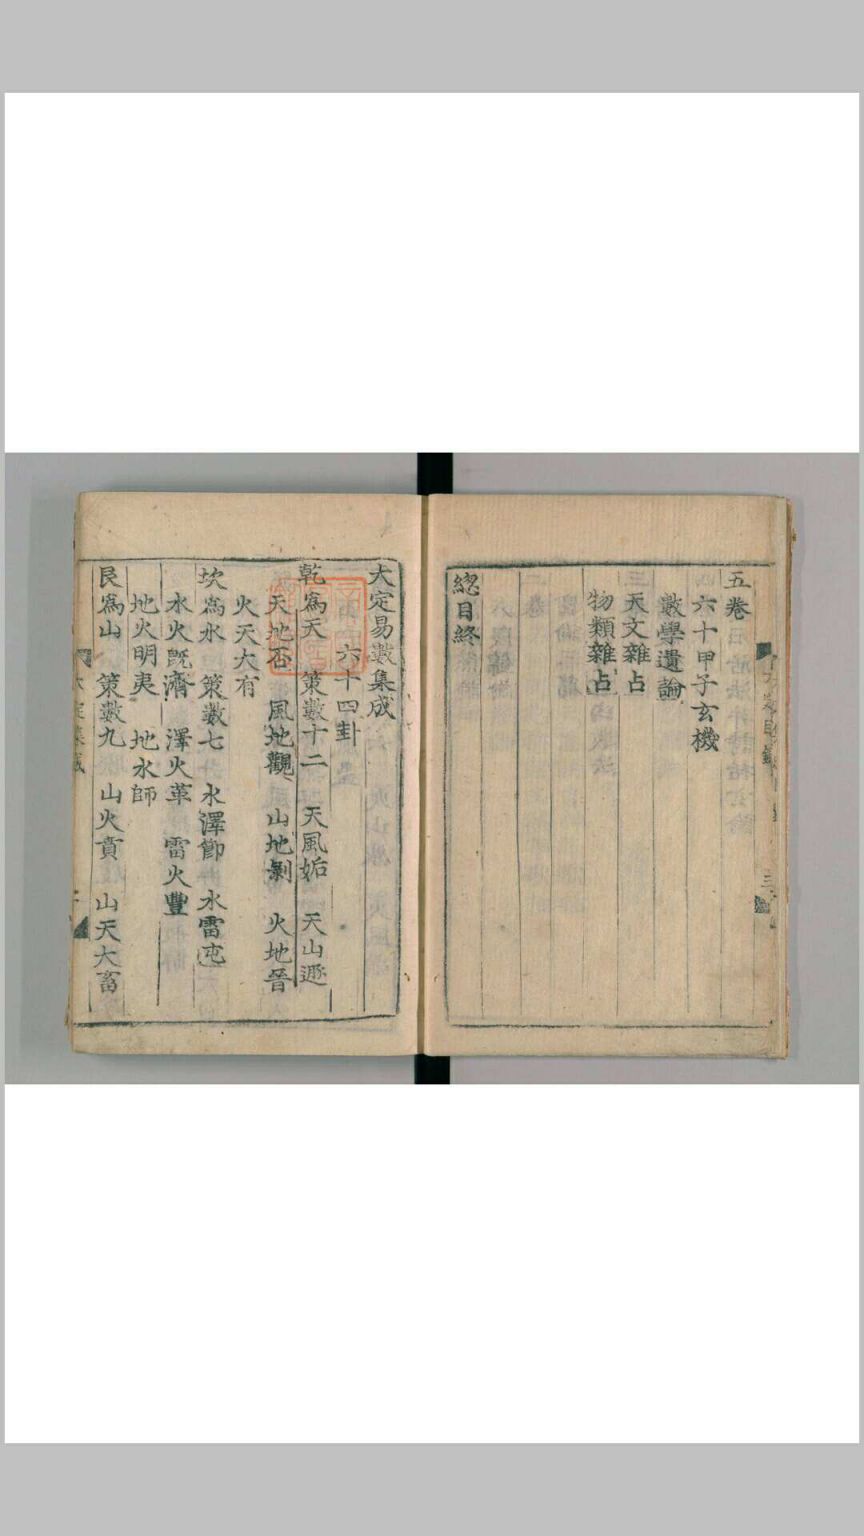 五卷
六十甲子玄機
數學遺論
天文雜占
物類雜占
總目終
大定易數集成
六十四卦
乾為天 策數十二 天風姤 天山遯
天地否 風地觀 山地剝 火地晉
火天大有
坎為水 策數七 水澤節 水雷屯
水火既濟 澤火革 雷火豐
地火明夷 地水師
艮為山 策數九 山火賁 山天大畜